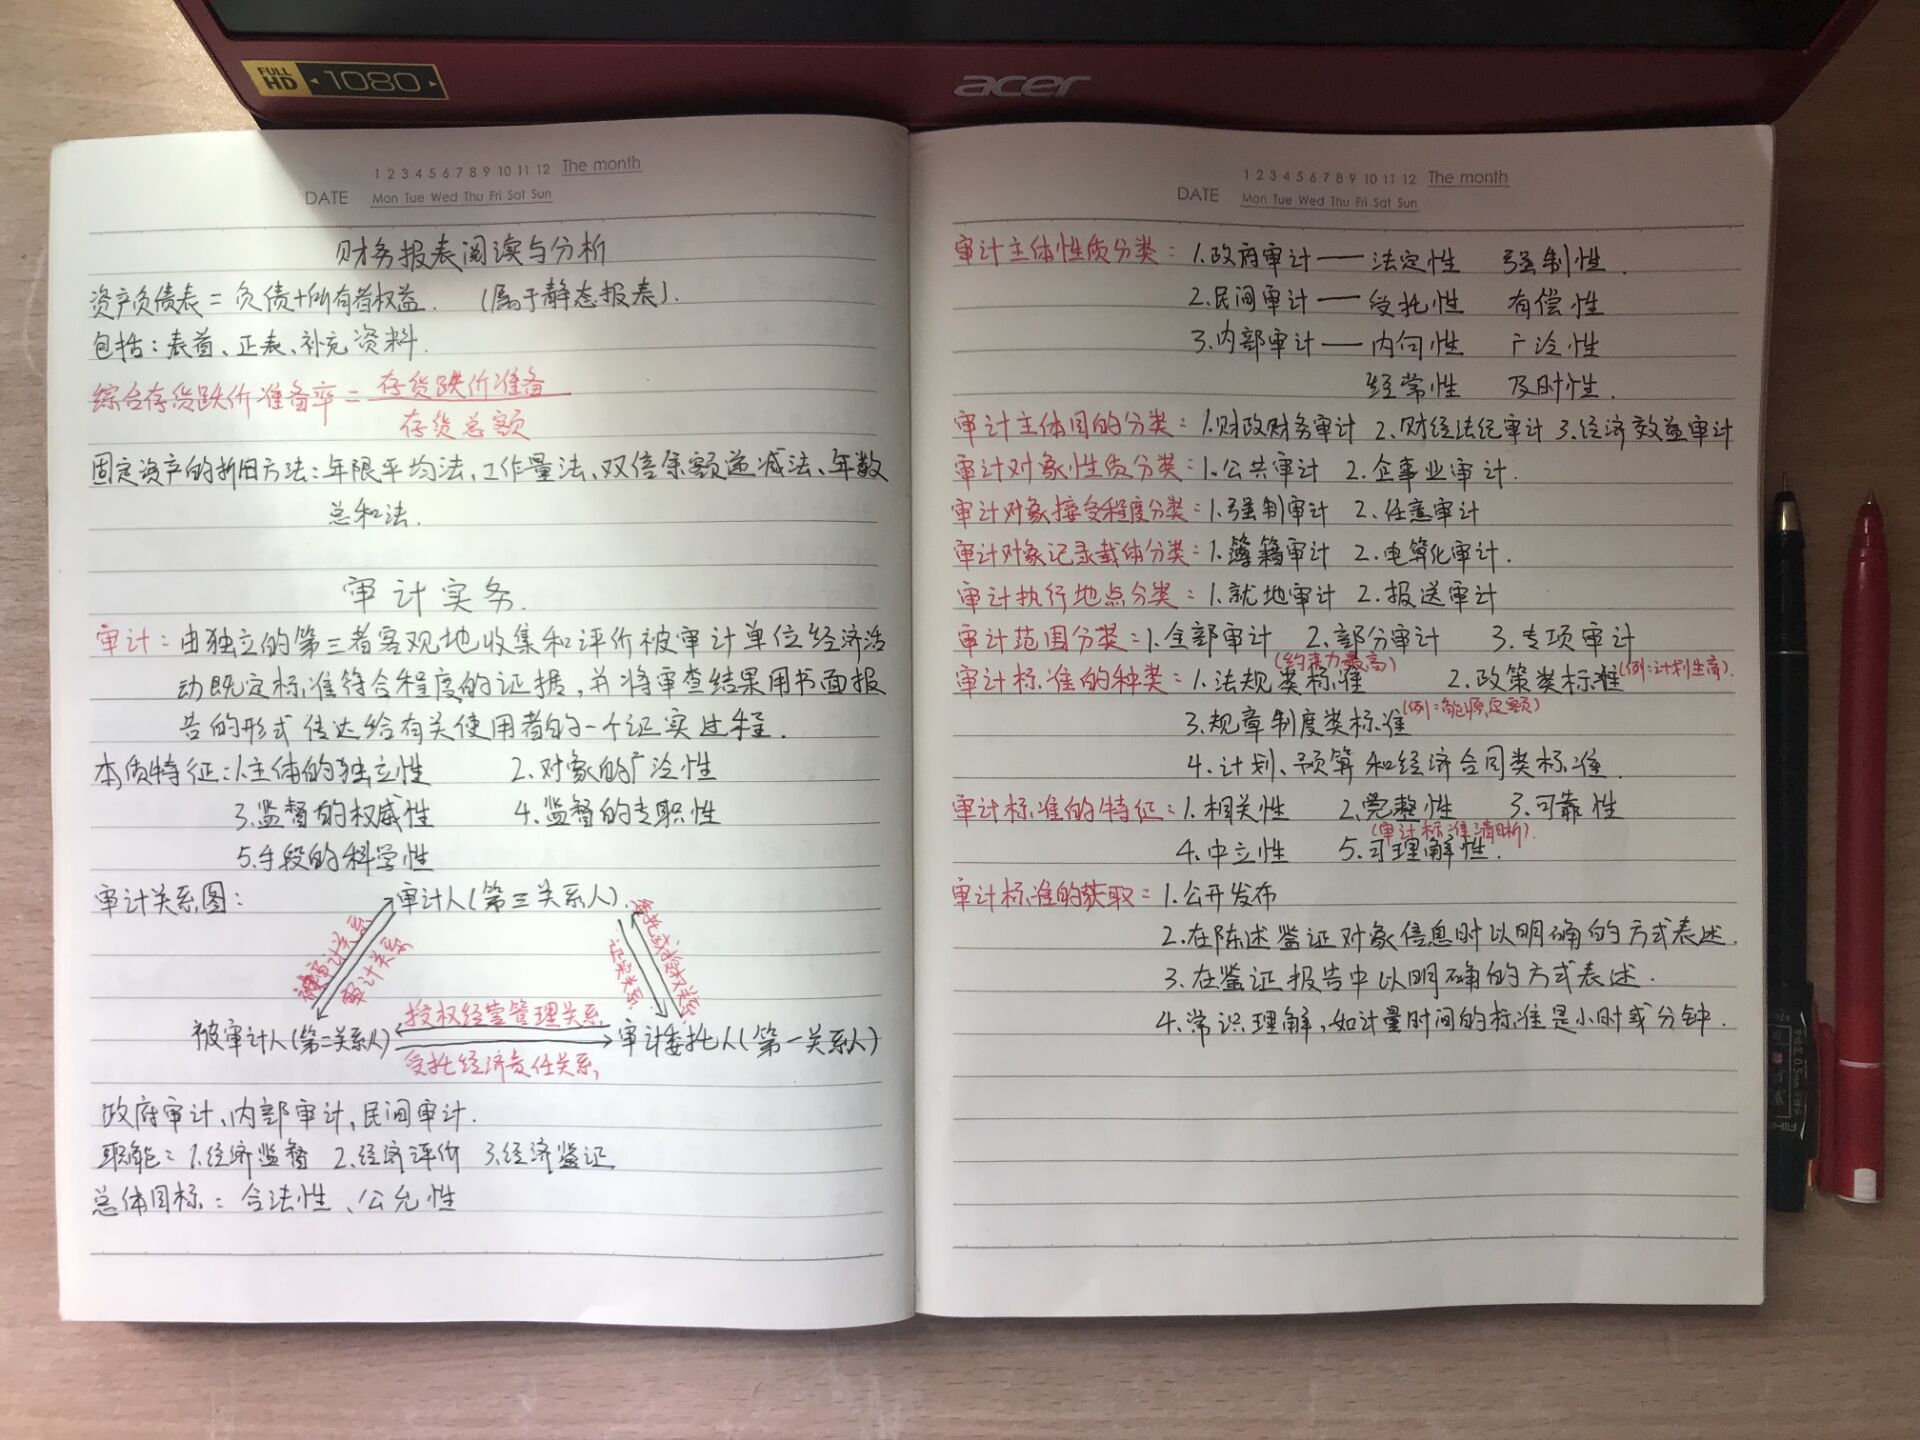 FULL HD 1080
acer
1 2 3 4 5 6 7 8 9 10 11 12 The month
DATE Mon Tue Wed Thu Fri Sat Sun
财务报表阅读与分析
资产负债表=负债+所有者权益. (属于静态报表).
包括:表首、正表、补充资料.
综合存货跌价准备率=存货跌价准备
存货总额
固定资产的折旧方法:年限平均法、工作量法、双倍余额递减法、年数
总和法.
审计实务.
审计:由独立的第三者客观地收集和评价被审计单位经济活
动既定标准符合程度的证据,并将审查结果用书面报
告的形式传达给有关使用者的一个证实过程.
本质特征:1.主体的独立性 2.对象的广泛性
3.监督的权威性 4.监督的专职性
5.手段的科学性
审计关系图: 审计人(第三关系人).
被审计关系
审计关系
证实关系
委托或授权关系
授权经营管理关系
被审计人(第二关系人) 审计委托人(第一关系人)
受托经济责任关系
政府审计,内部审计,民间审计.
职能:1.经济监督 2.经济评价 3.经济鉴证
总体目标:合法性、公允性
1 2 3 4 5 6 7 8 9 10 11 12 The month
DATE Mon Tue Wed Thu Fri Sat Sun
审计主体性质分类:1.政府审计——法定性 强制性.
2.民间审计——受托性 有偿性
3.内部审计——内向性 广泛性
经常性 及时性.
审计主体目的分类:1.财政财务审计 2.财经法纪审计 3.经济效益审计
审计对象性质分类:1.公共审计 2.企事业审计.
审计对象接受程度分类:1.强制审计 2.任意审计
审计对象记录载体分类:1.簿籍审计 2.电算化审计.
审计执行地点分类:1.就地审计 2.报送审计
审计范围分类:1.全部审计 2.部分审计 3.专项审计
(约束力最高)
审计标准的种类:1.法规类标准 2.政策类标准(例:计划生育).
3.规章制度类标准(例:能源定额)
4.计划、预算和经济合同类标准.
审计标准的特征:1.相关性 2.完整性 3.可靠性
(审计标准清晰).
4.中立性 5.可理解性.
审计标准的获取:1.公开发布
2.在陈述鉴证对象信息时以明确的方式表述.
3.在鉴证报告中以明确的方式表述.
4.常识理解,如计量时间的标准是小时或分钟.